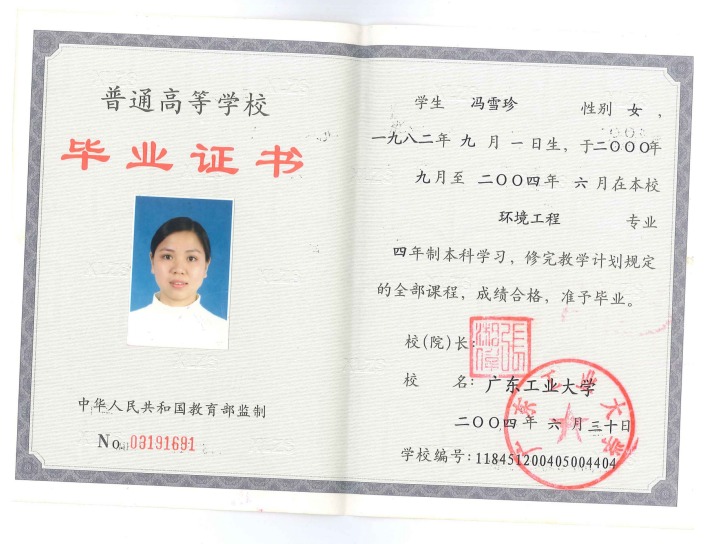 普通高等学校
毕业证书
中华人民共和国教育部监制
No. 03191691
学生 冯雪珍 性别 女，
一九八二年 九 月 一 日生，于二〇〇〇年
九月至 二〇〇四年 六 月在本校
环境工程 专业
四年制本科学习，修完教学计划规定
的全部课程，成绩合格，准予毕业。
校(院)长：
校 名：广东工业大学
二〇〇四年 六 月三十日
学校编号：118451200405004404
广东工业大学